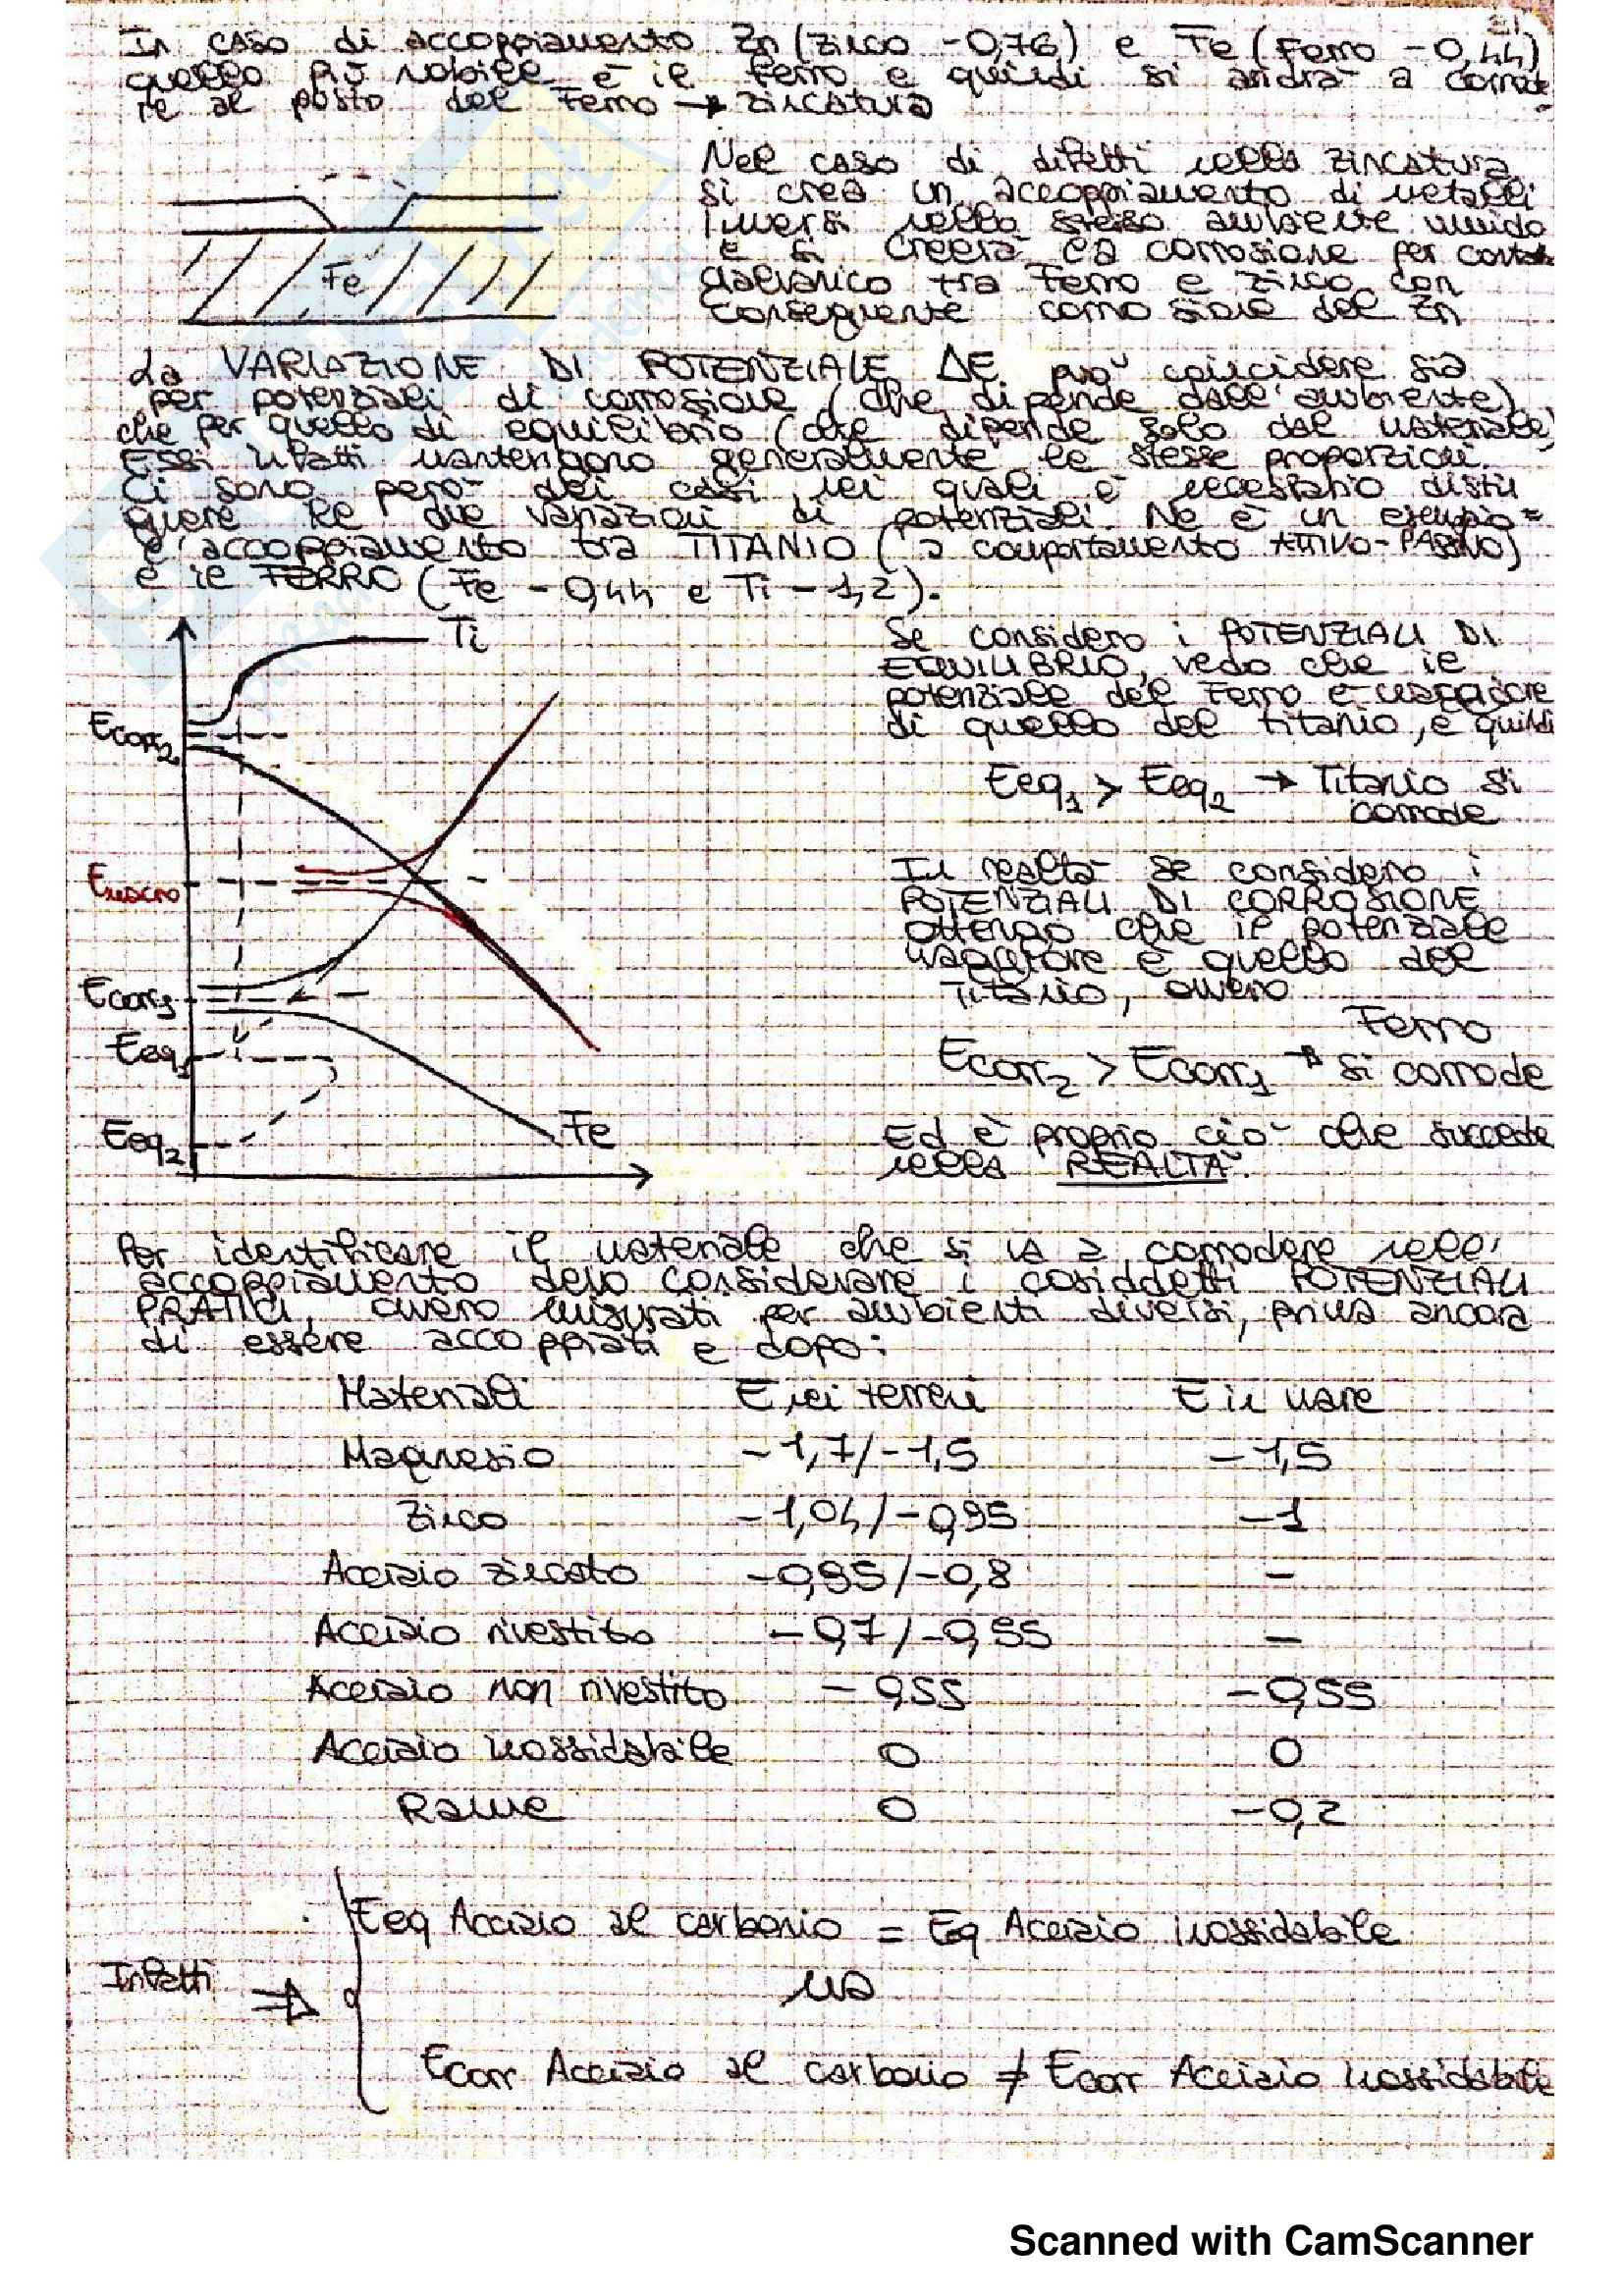 21
In caso di accoppiamento Zn (Zinco -0,76) e Fe (Ferro -0,44)
quello più nobile è il Ferro e quindi si andrà a corrode
re al posto del Ferro → zincatura
Nel caso di difetti nella zincatura
si crea un accoppiamento di metalli
immersi nello stesso ambiente umido
e si creerà la corrosione per contatto
Galvanico tra Ferro e Zinco con
conseguente corrosione del Zn
Fe
La VARIAZIONE DI POTENZIALE ΔE può coincidere sia
per potenziali di corrosione (che dipende dall'ambiente)
che per quello di equilibrio (che dipende solo dal materiale)
Essi infatti mantengono generalmente le stesse proporzioni.
Ci sono però dei casi nei quali è necessario distin
guere le due variazioni di potenziali. Ne è un esempio
l'accoppiamento tra TITANIO (a comportamento ATTIVO-PASSIVO)
e il FERRO (Fe -0,44 e Ti -1,2).
Ti
Ecorr2
Emacro
Ecorr1
Eeq1
Eeq2
Fe
Se considero i POTENZIALI DI
EQUILIBRIO, vedo che il
potenziale del Ferro è maggiore
di quello del titanio, e quindi
Eeq1 > Eeq2 → Titanio si
corrode
In realtà se considero i
POTENZIALI DI CORROSIONE
ottengo che il potenziale
maggiore è quello del
Titanio, ovvero
Ferro
Ecorr2 > Ecorr1 → si corrode
Ed è proprio ciò che succede
nella REALTÀ.
Per identificare il materiale che si va a corrodere nell'
accoppiamento devo considerare i cosiddetti POTENZIALI
PRATICI, ovvero misurati per ambienti diversi, prima ancora
di essere accoppiati e dopo:
Materiali E nei terreni E in mare
Magnesio -1,7/-1,5 -1,5
Zinco -1,04/-0,95 -1
Acciaio zincato -0,95/-0,8 -
Acciaio rivestito -0,7/-0,55 -
Acciaio non rivestito -0,55 -0,55
Acciaio inossidabile 0 0
Rame 0 -0,2
Eeq Acciaio al carbonio = Eq Acciaio inossidabile
Infatti ⇒ ma
Ecorr Acciaio al carbonio ≠ Ecorr Acciaio inossidabile
Scanned with CamScanner